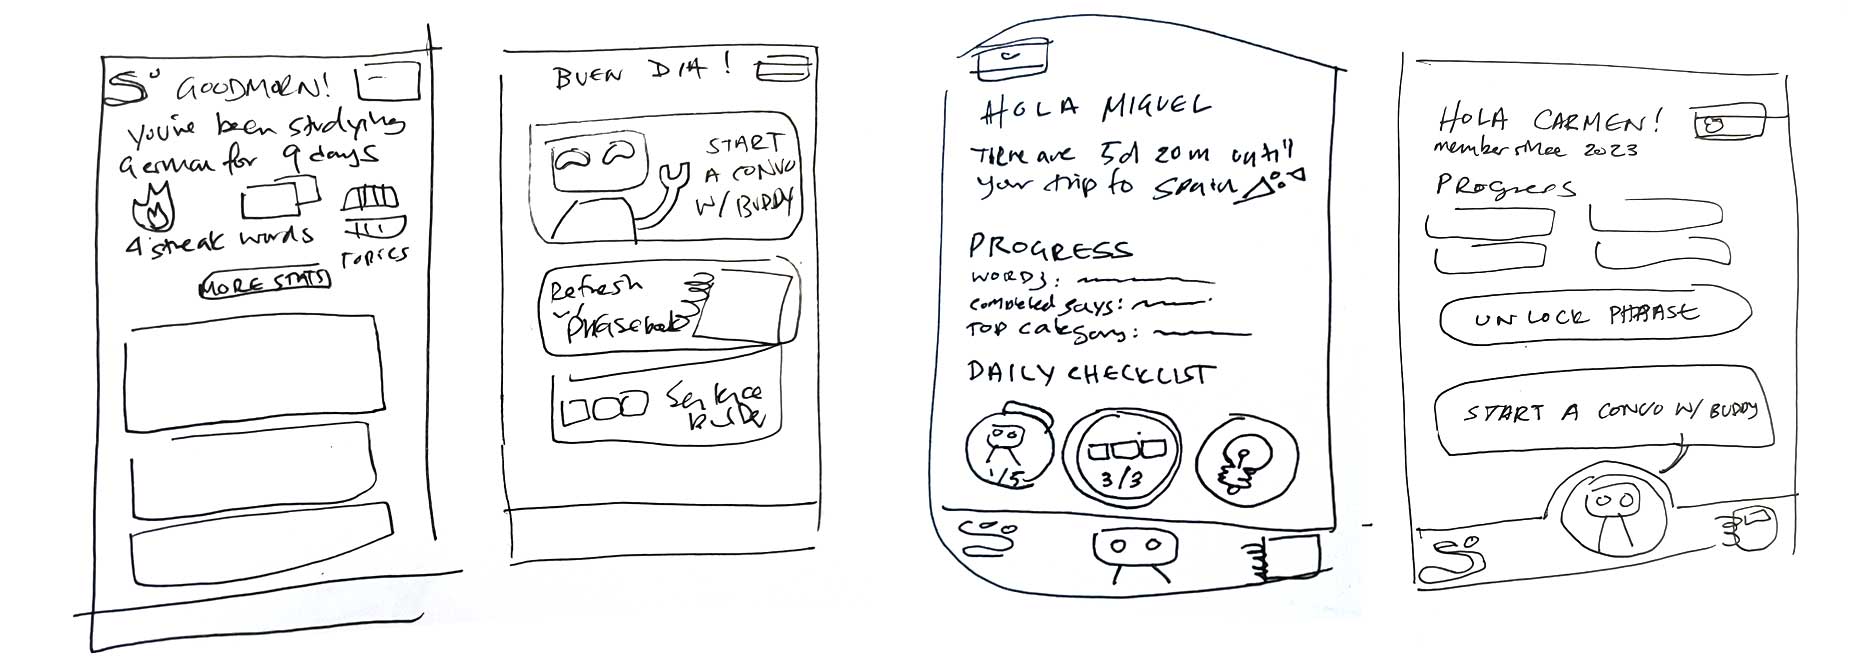 GOODMORN!
You've been studying
German for 9 days
4 streak
words
TOPICS
MORE STATS
BUEN DIA!
START
A CONVO
W/ BUDDY
Refresh
phrasebook
Sentence
builder
HOLA MIGUEL
There are 5d 20m until
your trip to Spain
PROGRESS
WORDS:
completed says:
TOP category:
DAILY CHECKLIST
1/5
3/3
HOLA CARMEN!
member since 2023
PROGRESS
UNLOCK PHRASE
START A CONVO W/ BUDDY